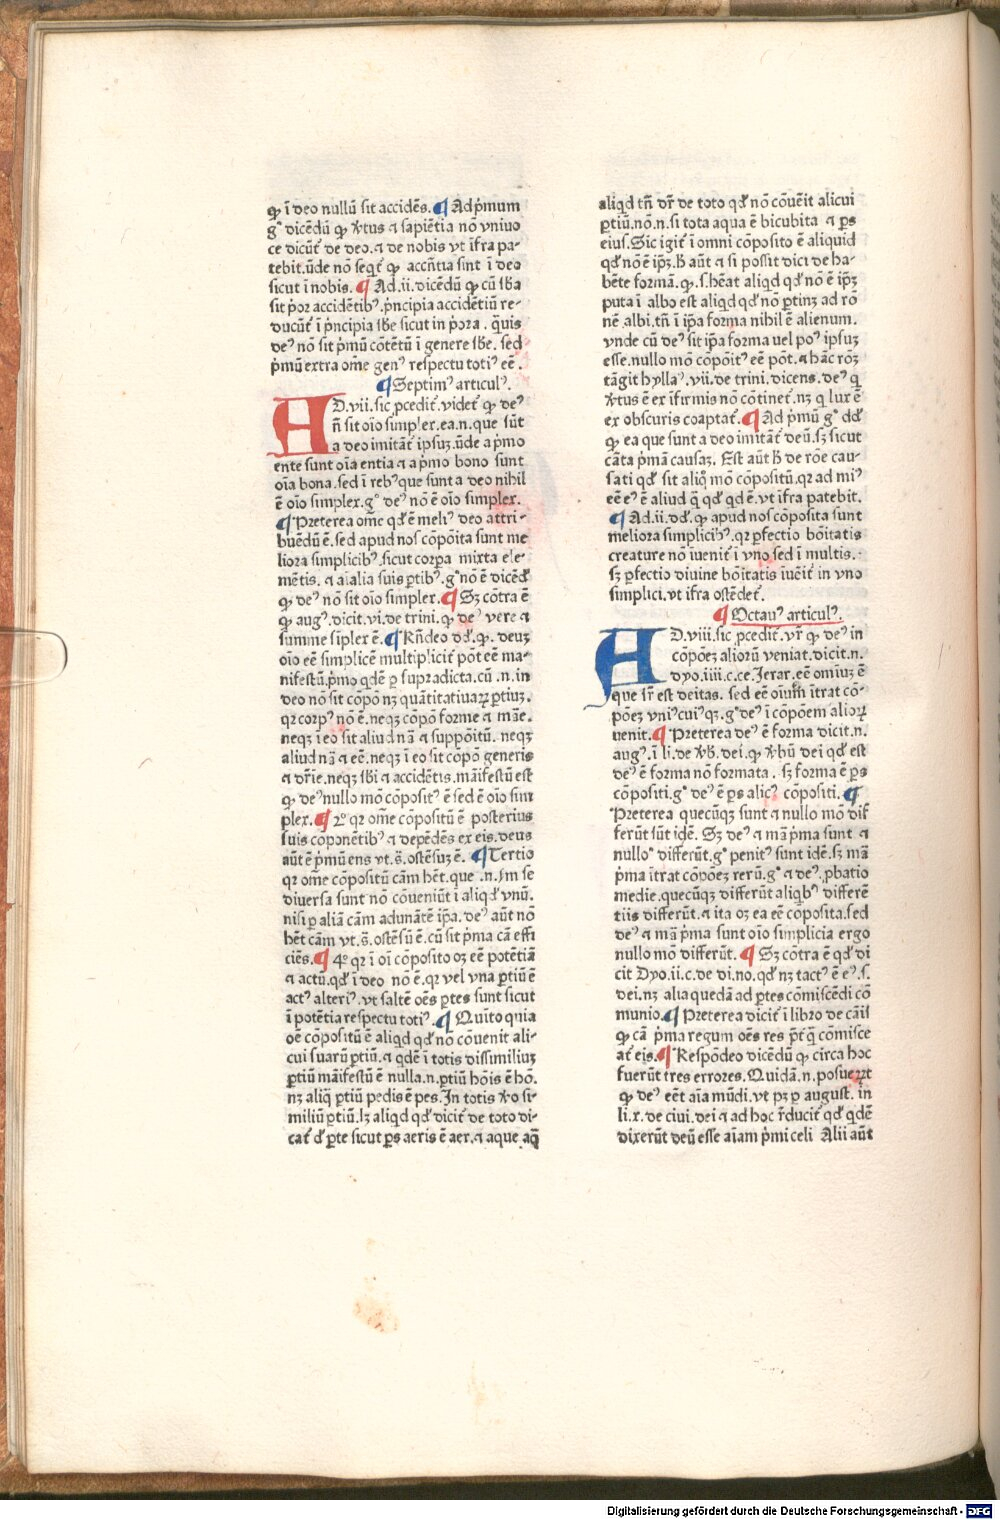 ꝙ ī deo nullū sit accidēs. ¶ Ad pͥmum
gͦ dicēdū ꝙ v̓tus ⁊ sapiētia nō vniuo
ce dicūt᷑ de deo.⁊ de nobis vt īfra pa-
tebit.ūde nō seqt᷑ ꝙ accn̄tia sint ī deo
sicut ī nobis. ¶ Ad.ii.dicēdū ꝙ cū sb̄a
sit pͥor accidētibꝰ.pͥncipia accidētiū re-
ducūt᷑ ī pͥncipia sb̄e sicut in pͥora. q̄uis
deꝰ nō sit pͥmū cōtētū ī genere sb̄e. sed
pͥmū extra om̄e genꝰ respectu totiꝰ eē.
¶ Septimꝰ articulꝰ.
AD.vii.sic ꝓcedit᷑.videt᷑ ꝙ deꝰ
n̄ sit oīo simplex.ea.n.que sūt
a deo imitāt᷑ ipsuꝫ.ūde a pͥmo
ente sunt oīa entia ⁊ a pͥmo bono sunt
oīa bona.sed ī rebꝰ que sunt a deo nihil
ē oīo simplex.gͦ deꝰ nō ē oīo simplex.
¶ Preterea om̄e qd̓ ē meliꝰ deo attri-
buēdū ē.sed apud nos cōpōita sunt me
liora simplicibꝰ.sicut corpa mixta ele-
mētis. ⁊ aīalia suis ꝑtibꝰ.gͦ nō ē dicēd̓
ꝙ deꝰ nō sit oīo simplex. ¶ Sꝫ cōtra ē
ꝙ augꝰ.dicit.vi.de trini. ꝙ deꝰ vere ⁊
summe sīplex ē. ¶ Rn̄deo dd̓.ꝙ. deuꝫ
oīo eē simplicē multiplicit᷑ pōt eē ma-
nifestū.pͥmo qdē ꝑ supradicta.cū.n.in
deo nō sit cōpō nꝫ quātitatiuaꝝ ꝑtiuꝫ.
qꝛ corpꝰ nō ē.neqꝫ cōpō forme ⁊ māe.
neqꝫ ī eo sit aliud nā ⁊ suppōitū. neqꝫ
aliud nā ⁊ eē.neqꝫ ī eo sit cōpō generis
⁊ dr̄ie.neqꝫ sb̄i ⁊ accidētis.māifestū est
ꝙ deꝰ nullo mō cōpositꝰ ē sed ē oīo sim
plex. ¶ 2ͦ qꝛ om̄e cōpositū ē posterius
suis cōponētibꝰ ⁊ depēdēs ex eis.deus
aūt ē pͥmū ens vt.s̄.ostēsuꝫ ē. ¶ Tertio
qꝛ om̄e cōpositū cām hēt.que .n.sm̄ se
diuersa sunt nō cōueniūt ī aliqd̓ vnū.
nisi ꝑ aliā cām adunātē ip̄a.deꝰ aūt nō
hēt cām vt.s̄.ostēsū ē.cū sit pͥma cā effi
ciēs. ¶ 4ͦ qꝛ ī oī cōposito oꝫ eē potētiā
⁊ actū.qd̓ ī deo nō ē.qꝛ vel vna ꝑtiū ē
actꝰ alteriꝰ.vt saltē oēs ꝑtes sunt sicut
ī potētia respectu totiꝰ. ¶ Quīto quia
oē cōpositū ē aliqd qd̓ nō cōuenit ali-
cui suarū ꝑtiū.⁊ qdē ī totis dissimiliuꝫ
ꝑtiū māifestū ē nulla.n.ꝑtiū hōis ē hō.
nꝫ aliq̄ ꝑtiū pedis ē pes.In totis v̓o si-
miliū ꝑtiū.lꝫ aliqd qd̓ dicit᷑ de toto di-
cat᷑ d̓ ꝑte sicut ꝑs aeris ē aer.⁊ aque aq̄
aliqd tn̄ dr̄ de toto qd̓ nō cōuēit alicui
ꝑtiū.nō.n.si tota aqua ē bicubita ⁊ ꝑs
eius.Sic igit᷑ ī omni cōposito ē aliquid
qd̓ nō ē ip̄ꝫ.h̄ aūt ⁊ si possit dici de ha-
bēte formā.ꝙ.s.hēat aliqd qd̓ nō ē ip̄ꝫ
puta ī albo est aliqd qd̓ nō ꝑtinꝫ ad rō
nē albi.tn̄ ī ip̄a forma nihil ē alienum.
vnde cū deꝰ sit ip̄a forma uel poꝰ ipsuꝫ
esse.nullo mō cōpōitꝰ eē pōt.⁊ hāc rōꝫ
tāgit hyllaꝰ.vii.de trini.dicens.deꝰ q
v̓tus ē ex īfirmis nō cōtinet᷑.nꝫ q lux ē
ex obscuris coaptat᷑. ¶ Ad pͥmū gͦ dd̓
ꝙ ea que sunt a deo imitāt᷑ deū.sꝫ sicut
cāta pͥmā causaꝫ. Est aūt h̄ de rōe cau-
sati qd̓ sit aliqͦ mō cōpositū.qꝛ ad miꝰ
eē eꝰ ē aliud q̄ qd̓ qd ē.vt īfra patebit.
¶ Ad.ii.dd̓. ꝙ apud nos cōposita sunt
meliora simplicibꝰ.qꝛ ꝑfectio bōitatis
creature nō īuenit᷑ ī vno sed ī multis.
sꝫ ꝑfectio diuine bōitatis īuēit᷑ in vno
simplici.vt īfra ostēdet᷑.
¶ Octauꝰ articulꝰ.
AD.viii.sic ꝓcedit᷑.vr̄ ꝙ deꝰ in
cōpōeꝫ aliorū veniat.dicit.n.
dyo.iiii.c.ce.Jerar.eē omīuꝫ ē
que sr̄ est deitas. sed eē oīum ītrat cō-
pōeꝫ vniꝰcuiꝰqꝫ.gͦ deꝰ ī cōpōem alioꝝ
uenit. ¶ Preterea deꝰ ē forma dicit.n.
augꝰ.ī li.de v̓b̄.dei.ꝙ v̓bū dei qd̓ est
deꝰ ē forma nō formata. sꝫ forma ē ꝑs
cōpositi.gͦ deꝰ ē ꝑs alicꝰ cōpositi. ¶
Preterea quecūqꝫ sunt ⁊ nullo mō dif
ferūt sūt idē. Sꝫ deꝰ ⁊ mā pͥma sunt ⁊
nulloͦ differūt.gͦ penitꝰ sunt idē.sꝫ mā
pͥma ītrat cōpōeꝫ rerū.gͦ ⁊ deꝰ.ꝓbatio
medie.quecūqꝫ differūt aliqbꝰ differē
tiis differūt.⁊ ita oꝫ ea eē cōposita.sed
deꝰ ⁊ mā pͥma sunt oīo simplicia ergo
nullo mō differūt. ¶ Sꝫ cōtra ē qd̓ di
cit Dyo.ii.c.de di.no.qd̓ nꝫ tactꝰ ē eꝰ.s.
dei.nꝫ alia quedā ad ꝑtes cōmiscēdi cō
munio. ¶ Preterea dicit᷑ ī libro de cāis
ꝙ cā pͥma regum oēs res pr̄t᷑ q̄ cōmisce
at᷑ eis. ¶ Respōdeo dicēdū ꝙ circa hoc
fuerūt tres errores.Quidā.n.posueꝝt
ꝙ deꝰ eēt aīa mūdi.vt pꝫ ꝑ august. in
li.x.de ciui.dei ⁊ ad hoc r̄ducit᷑ qd̓ qdē
dixerūt deū esse aīam pͥmi celi Alii aūt
Digitalisierung gefördert durch die Deutsche Forschungsgemeinschaft - DFG